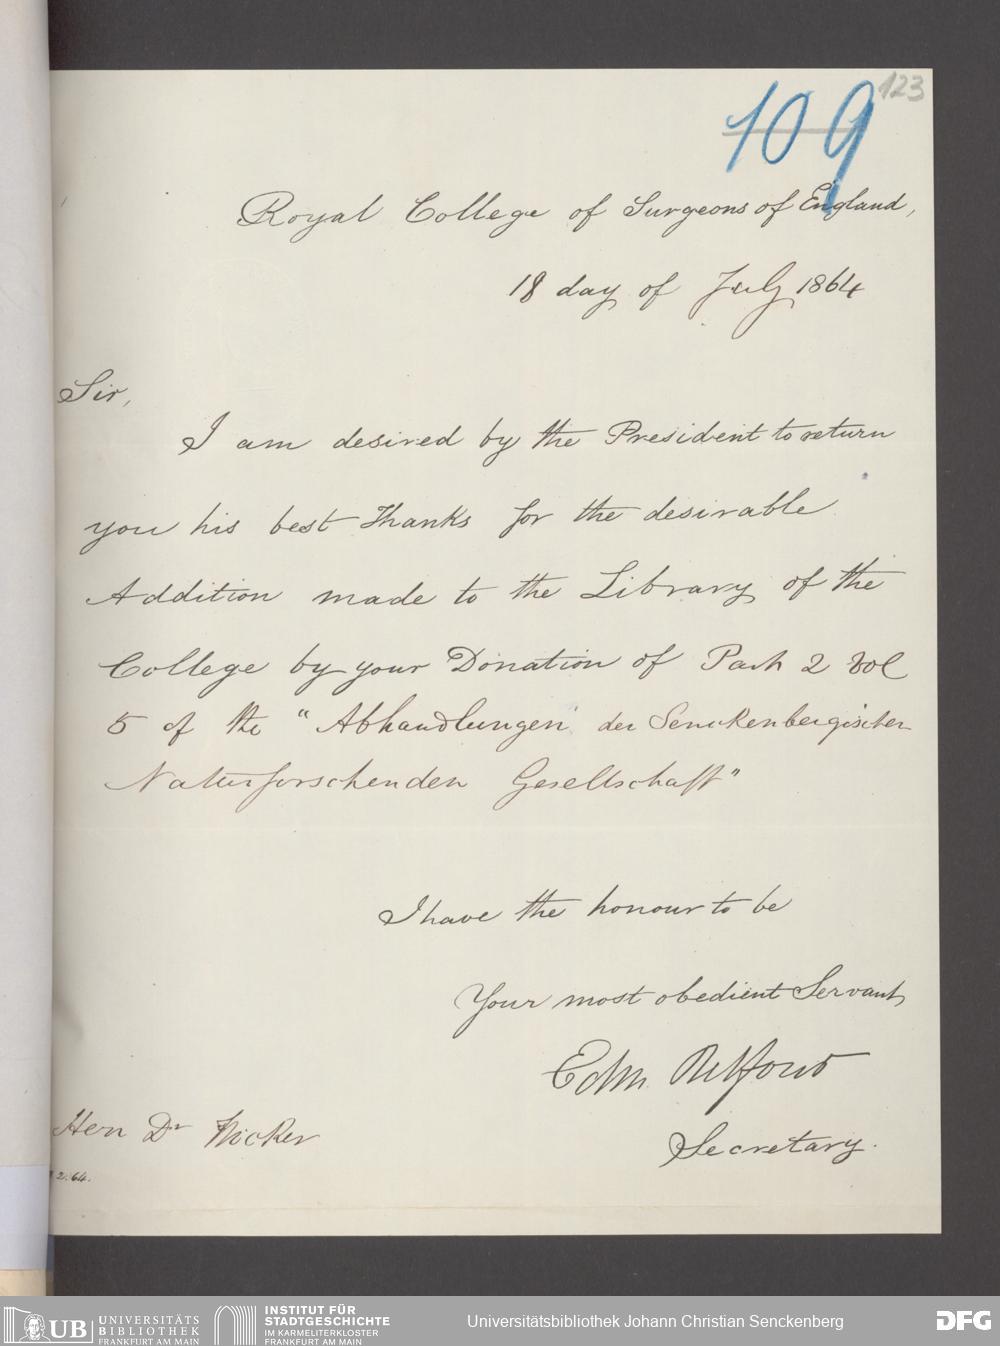 123
109
Royal College of Surgeons of England,
18 day of July 1864
Sir,
I am desired by the President to return
you his best Thanks for the desirable
Addition made to the Library of the
College by your Donation of Part 2 Vol
5 of the "Abhandlungen der Senckenbergischen
Naturforschenden Gesellschaft"
I have the honour to be
Your most obedient Servant,
Edm. Belfour
Secretary.
Herr Dr
2.64.
UB UNIVERSITÄTS
BIBLIOTHEK
FRANKFURT AM MAIN
INSTITUT FÜR
STADTGESCHICHTE
IM KARMELITERKLOSTER
FRANKFURT AM MAIN
Universitätsbibliothek Johann Christian Senckenberg
DFG